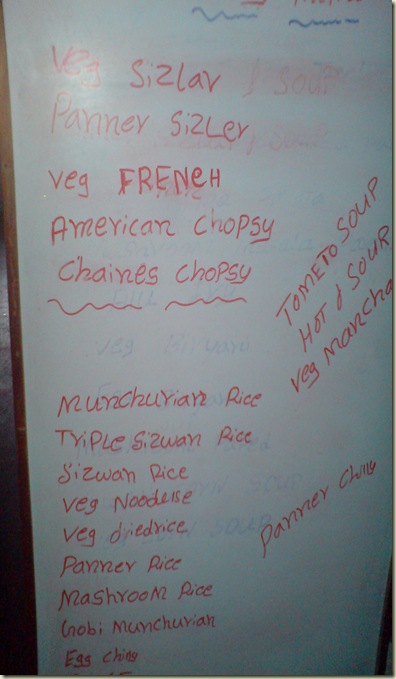 Veg Sizlar
Panner Sizler
Veg FRENCH
American Chopsy
Chaines Chopsy
TOMETO SOUP
HOT & SOUR
Veg MANCHA
Munchurian Rice
Triple Sizwan Rice
Sizwan Rice
Veg Noodelse
Veg driedrice
Panner Rice
Mashroom Rice
Gobi Munchurian
Egg Ching
Panner Ching